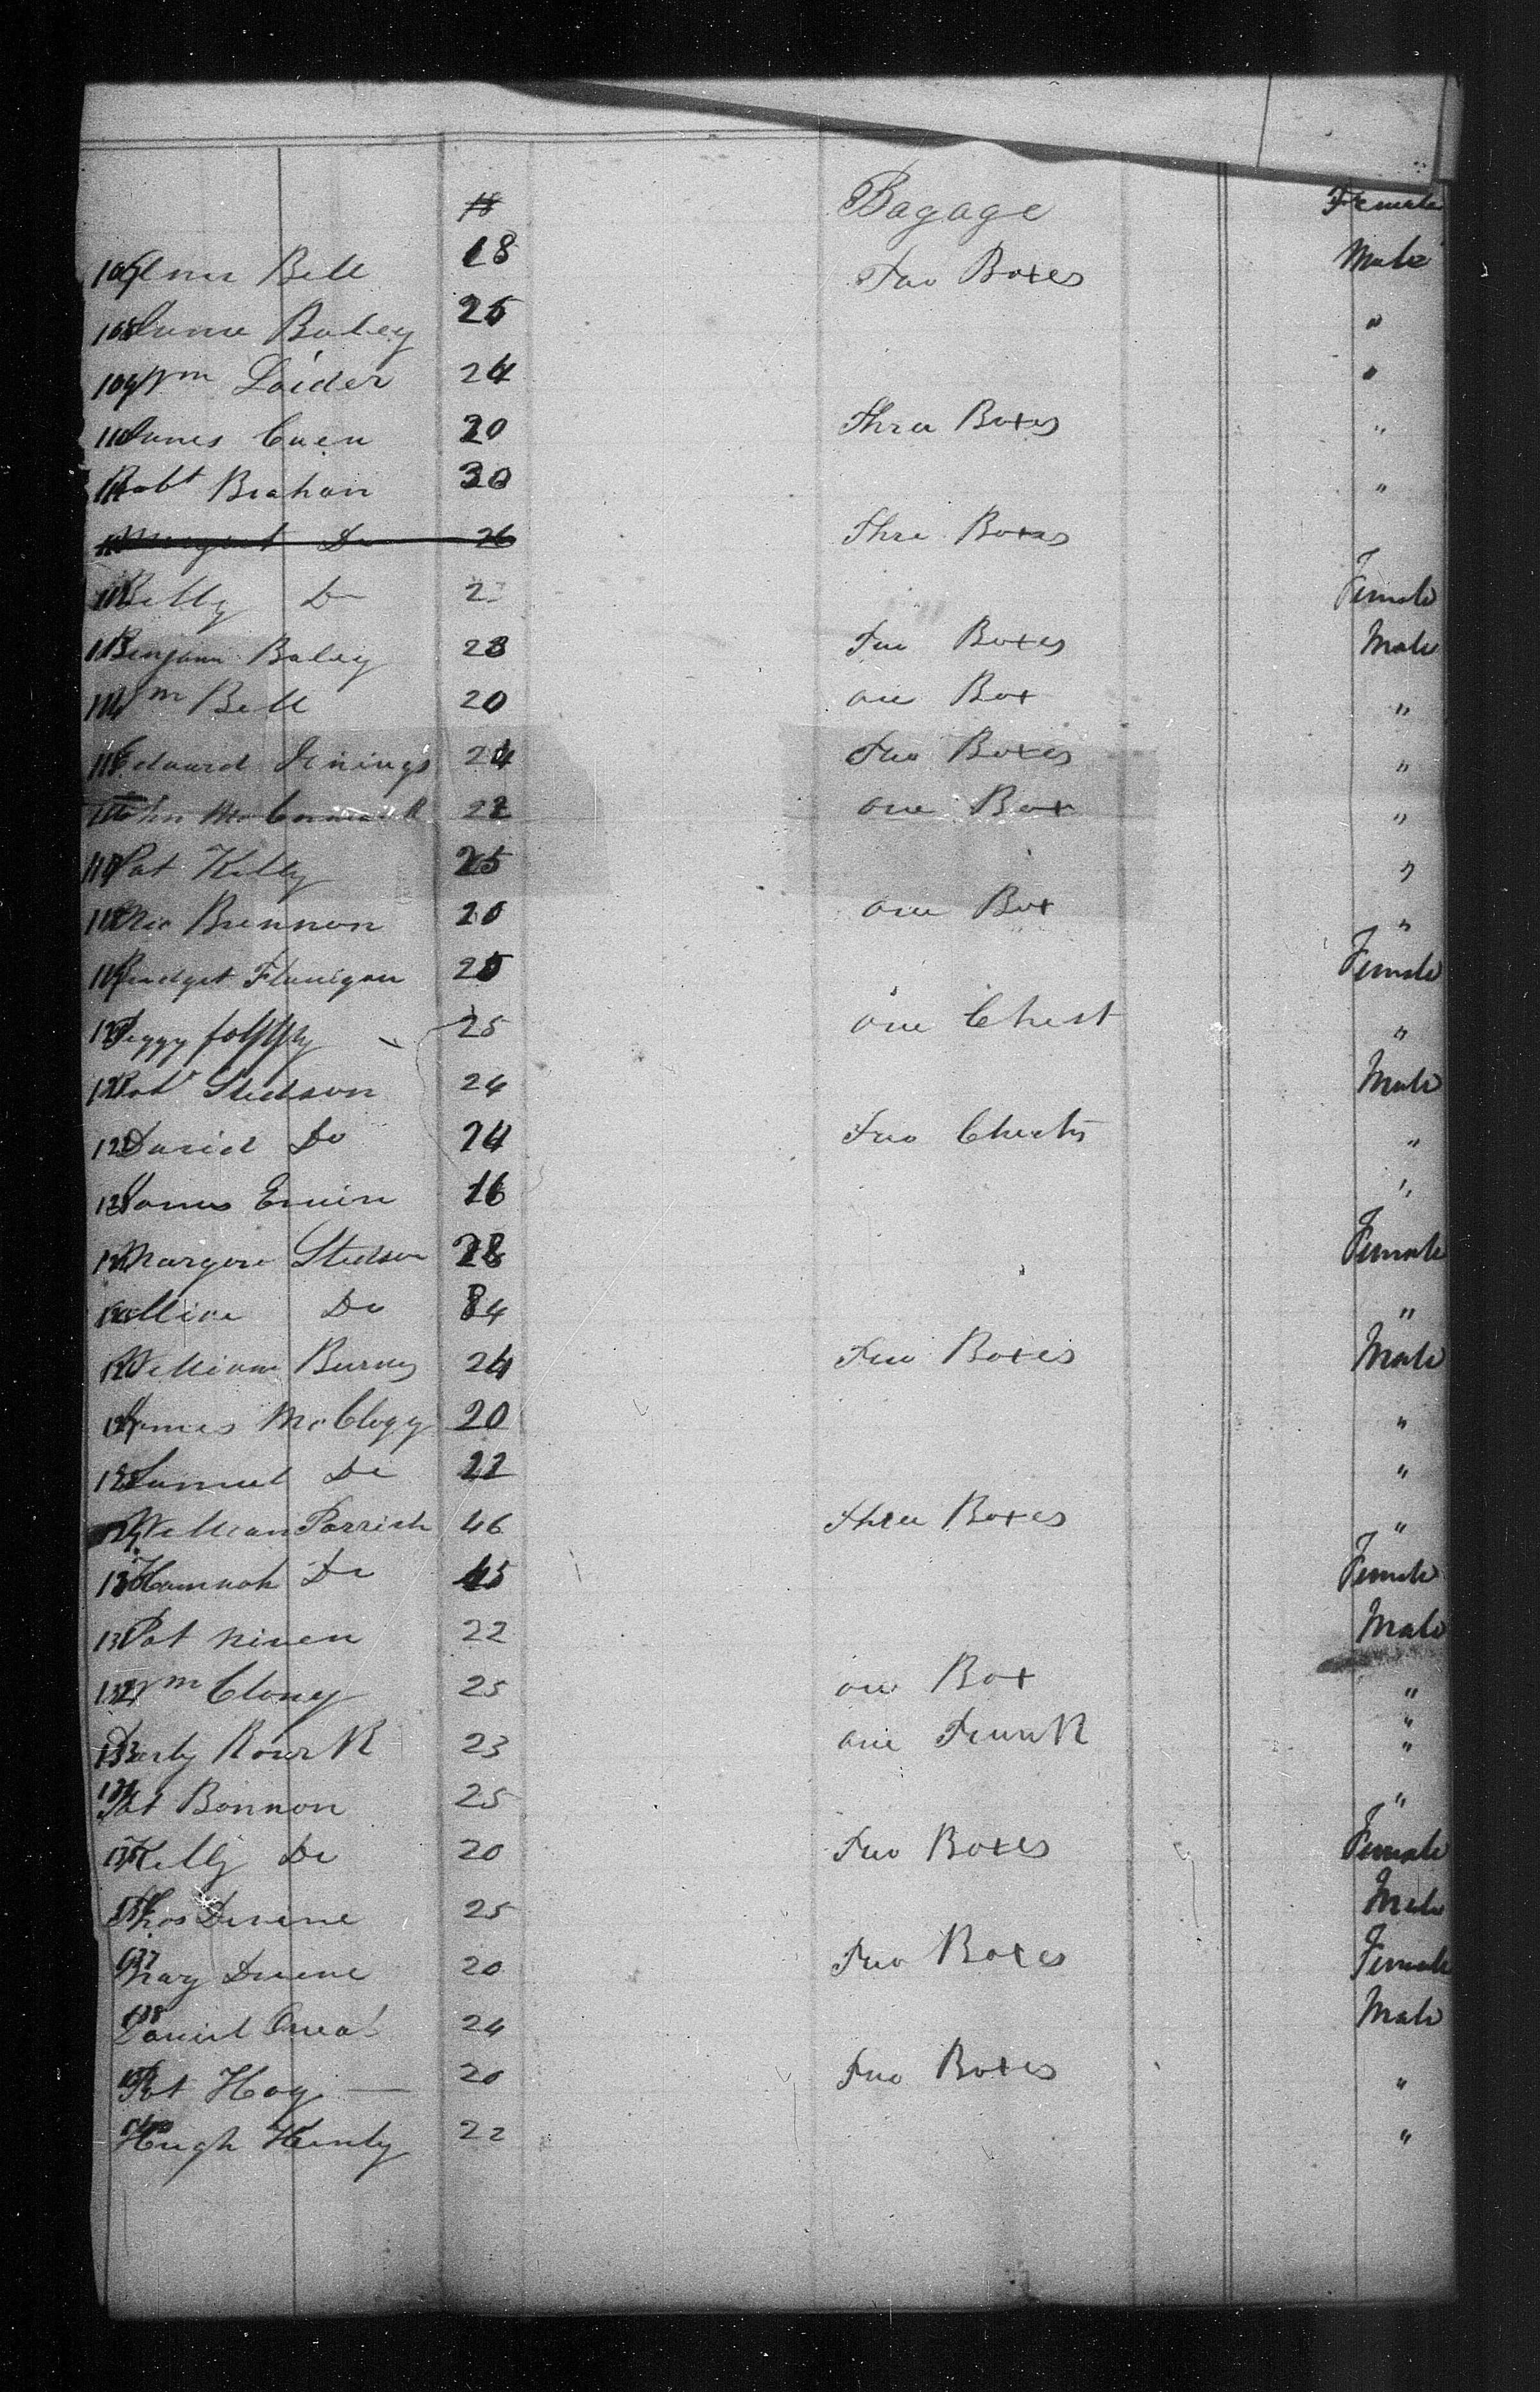 18 Bagage Female
107 Bell 18 Two Boxes Male
108 Baley 25 "
109 Wm Loider 24 "
110 James Cuen 20 Three Boxes "
111 Robt Brahan 30 "
Margret Do 26 Thre Boxes
112 Do 2 Female
113 Benjamin Baley 23 Two Boxes Male
114 Wm Bell 20 one Box "
115 Edward Jinings 24 Two Boxes "
116 John McCormack 22 one Box "
117 Pat Kelly 25 "
118 Mic Brennon 20 one Box "
119 Bridget Flanigan 25 Female
120 Peggy 25 one Chest "
121 Robt Stedson 24 Male
122 David Do 24 Two Chests "
123 James Erwin 16 "
124 Margere Stedson 28 Female
Do 84 "
126 William Burns 24 Two Boxes Male
127 James McClogy 20 "
128 Samuel Do 22 "
129 William Parrish 46 Three Boxes "
130 Hannah Do 45 Female
131 Pat Niven 22 Male
132 Wm Clony 25 one Box "
"
133 Darly RourK 23 one TrunK "
134 Pat Bonnon 25 "
135 Kelly Do 20 Two Boxes Female
136 Thos Devene 25 Male
137 Mary Devene 20 Two Boxes Female
138 Daniel 24 Male
139 Pat Hoy — 20 Two Boxes "
140 Hugh Henly 22 "